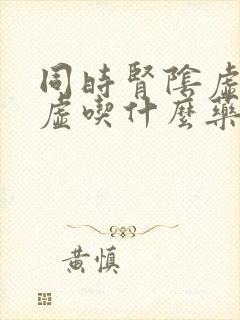 同時腎陰虛
虛喫什麼藥
黃慎